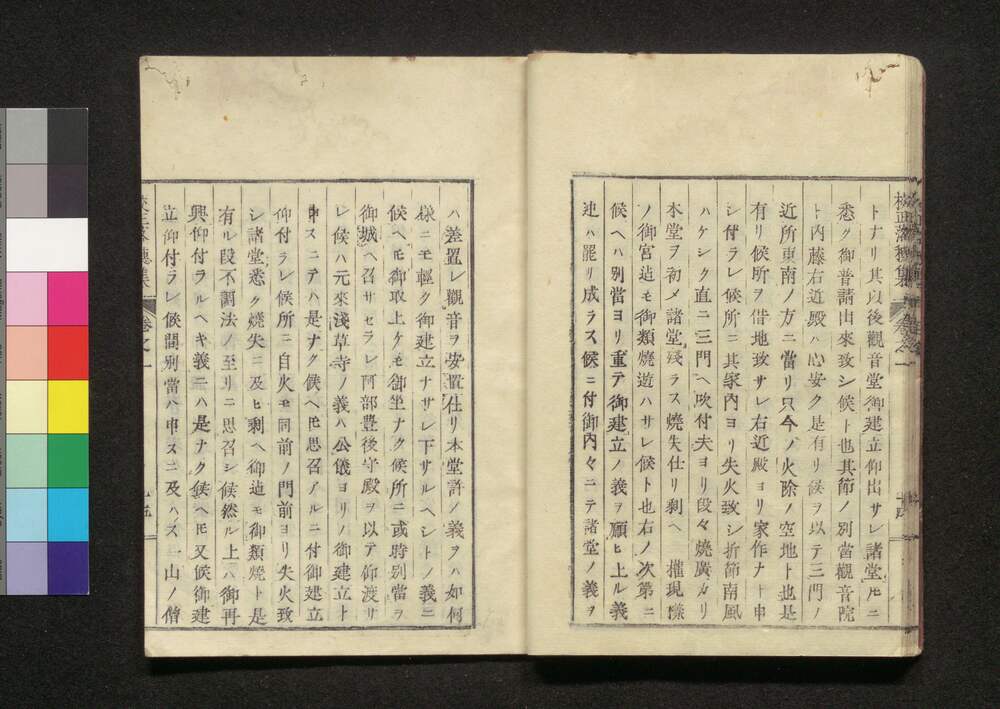 校正落穂集 巻之一
トナリ其以後觀音堂御建立仰出サレ諸堂𪜈ニ
悉ク御普請出來致シ候ト也其節ノ別當觀音院
ト内藤右近殿ハ心安ク是有リ候ヲ以テ三門ノ
近所東南ノ方ニ當リ只今ノ火除ノ空地ト也是
有リ候所ヲ借地致サレ右近殿ヨリ家作ナト申
シ付ラレ候所ニ其家内ヨリ失火致シ折節南風
ハケシク直ニ三門ヘ吹付夫ヨリ段々燒廣カリ
本堂ヲ初メ諸堂殘ラス燒失仕リ剩ヘ 權現樣
ノ御宮迠モ御類燒遊ハサレ候ト也右ノ次第ニ
候ヘハ別當ヨリ重テ御建立ノ義ヲ願ヒ上ル義
迚ハ罷リ成ラス候ニ付御内々ニテ諸堂ノ義ヲ
ハ差置レ觀音ヲ安置仕リ本堂許ノ義ヲハ如何
樣ニモ輕ク御建立ナサレ下サルヘシトノ義ニ
候ヘモ御取上ケモ御坐ナク候所ニ或時別當ヲ
御城ヘ召サセラレ阿部豊後守殿ヲ以テ仰渡サ
レ候ハ元來淺草寺ノ義ハ公儀ヨリノ御建立ト
申スニテハ是ナク候ヘ𪜈思召アルニ付御建立
仰付ラレ候所ニ自火モ同前ノ門前ヨリ失火致
シ諸堂悉ク燒失ニ及ヒ剩ヘ御迠モ御類燒ト是
有ル段不調法ノ至リニ思召シ候然ル上ハ御再
興仰付ラルヘキ義ニハ是ナク候ヘ𪜈又候御建
立仰付ラレ候間別當ハ申スニ及ハス一山ノ僧
校正落穂集 巻之一